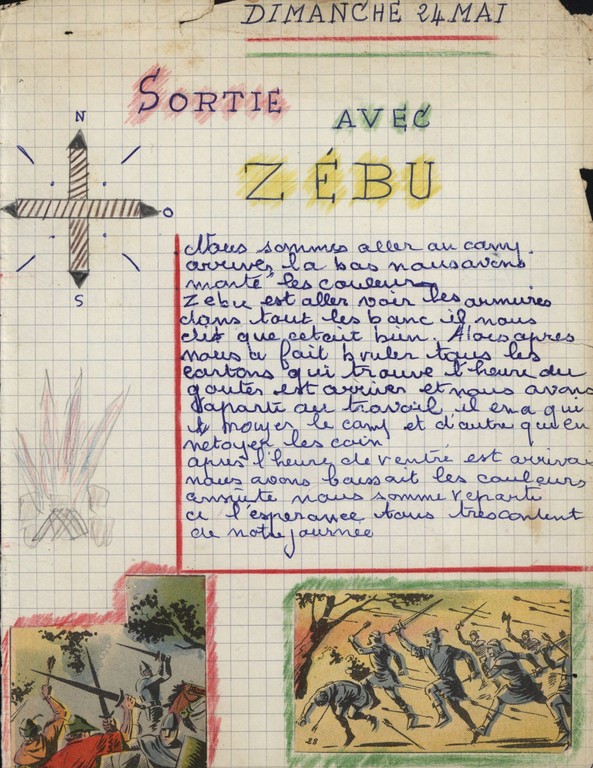 DIMANCHE 24 MAI
SORTIE
AVEC
ZÉBU
N
O
S
Nous sommes aller au camp.
arriver la bas nous avons
monté les couleur
Zebu est aller voir les armures
dans tout les banc il nous
dit que cetait bien. Alors apres
nous a fait bruler tous les
cartons qui trouve l'heure du
gouter est arriver et nous avons
aparti au travail il en a qui
le camp et d'autre qui en
netoyer les coin
apres l'heure de ventré est arrivai
nous avons baissait les couleurs
ensuite nous somme reparti
a l'esperance tous tres content
de notre journée
28